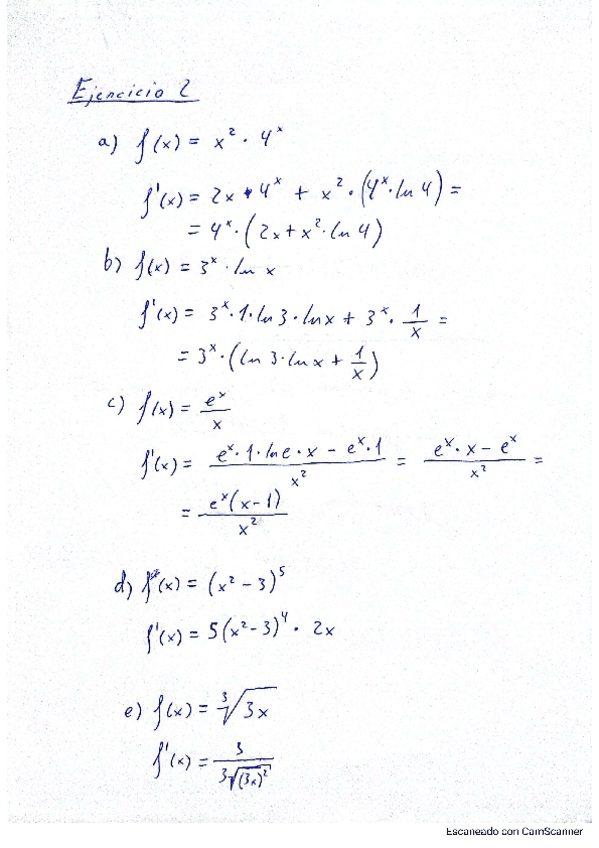 Ejercicio 2
a) f(x) = x² · 4ˣ
f'(x) = 2x · 4ˣ + x² · (4ˣ · ln 4) =
= 4ˣ · (2x + x² · ln 4)
b) f(x) = 3ˣ · ln x
f'(x) = 3ˣ · 1 · ln 3 · ln x + 3ˣ · 1/x =
= 3ˣ · (ln 3 · ln x + 1/x)
c) f(x) = eˣ/x
f'(x) = (eˣ · 1 · ln e · x − eˣ · 1)/x² = (eˣ · x − eˣ)/x² =
= eˣ(x − 1)/x²
d) f(x) = (x² − 3)⁵
f'(x) = 5(x² − 3)⁴ · 2x
e) f(x) = ∛3x
f'(x) = 3/(3√(3x)²)
Escaneado con CamScanner